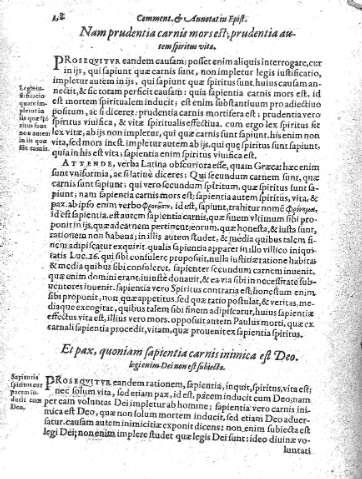 Comment. & Annotat in Epist.
Nam prudentia carnis mors est; prudentia au-
tem spiritus vita.
PROSEQVITVR eandem causam: posset enim aliquis interrogare, cur
in ijs, qui sapiunt quæ carnis sunt, non impletur legis iustificatio,
impletur autem in ijs, qui quæ spiritus sunt sapiunt. huius causam an-
nectit, & sic totam perficit causam: quia sapientia carnis mors est, id
est mortem spiritualem inducit; est enim substantiuum pro adiectiuo
positum, ac si diceret: prudentia carnis mortifera est: prudentia vero
spiritus viuifica, & vitæ spiritualis effectiua. cum ergo lex spiritus sit
lex vitæ, ab ijs non impletur, qui quæ carnis sunt sapiunt. his enim non
vita, sed mors inest. impletur autem ab ijs, qui quæ spiritus sunt sapiunt,
quia in his est vita; sapientia enim spiritus viuifica est.
ATTENDE, verba Latina obscuriora esse, quam Græca: hæc enim
sunt vniformia, ac si latinè diceres: Qui secundum carnem sunt, quæ
carnis sunt sapiunt: qui vero secundum spiritum, quæ spiritus sunt sa-
piunt; nam sapientia carnis mors est; sapientia autem spiritus, vita, &
pax. ab ipso enim verbo φρονεῖν, id est, sapiam, trahitur nomē φρόνημα,
id est sapientia. est autem sapientia carnis, quæ finem vltimum sibi pro-
ponit in ijs, quæ ad carnem pertinent; eorum, quæ honesta, & iusta sunt,
rationem non habens; in eum autem finem, & media quibus talem fi-
nem adipiscatur exquirit. qualis sapientia apparet in illo villico iniqui-
tatis Luc. 16. qui sibi consulere proposuit, nulla iustitiæ ratione habita:
& media quibus sibi consuleret, sapienter secundum carnem inuenit,
quæ enim domini erant, iniustè donauit, & ea via sibi in necessitate sub-
uentores inuenit. sapientia vero Spiritus contraria est; honestum enim
sibi proponit, non quæ appetitus, sed quæ ratio postulat, & veritas, me-
diaque excogitat, quibus talem sibi finem adipiscatur, huius sapientiæ
effectus vita est, illius vero mors. opposuit autem Paulus mori, quæ ex
carnali sapientia procedit, vitam, quæ prouenit ex sapientia spiritus.
Et pax, quoniam sapientia carnis inimica est Deo.
legi enim Dei non est subiecta.
Sapientia
spiritus est
pacem in-
ducit cum
Deo.
PROSEQVITVR eandem rationem, sapientia, inquit, spiritus, vita est;
nec solum vita, sed etiam pax, id est, pacem inducit cum Deo; nam
per eam voluntas Dei impletur ab homine; sapientia vero carnis ini-
mica est Deo, quæ non solum mortem inducit, sed etiam Deo aduer-
satur. causam autem inimicitiæ exponit dicens: non enim subiecta est
legi Dei; non enim implere studet quæ legis Dei sunt: ideo diuinæ vo-
luntati